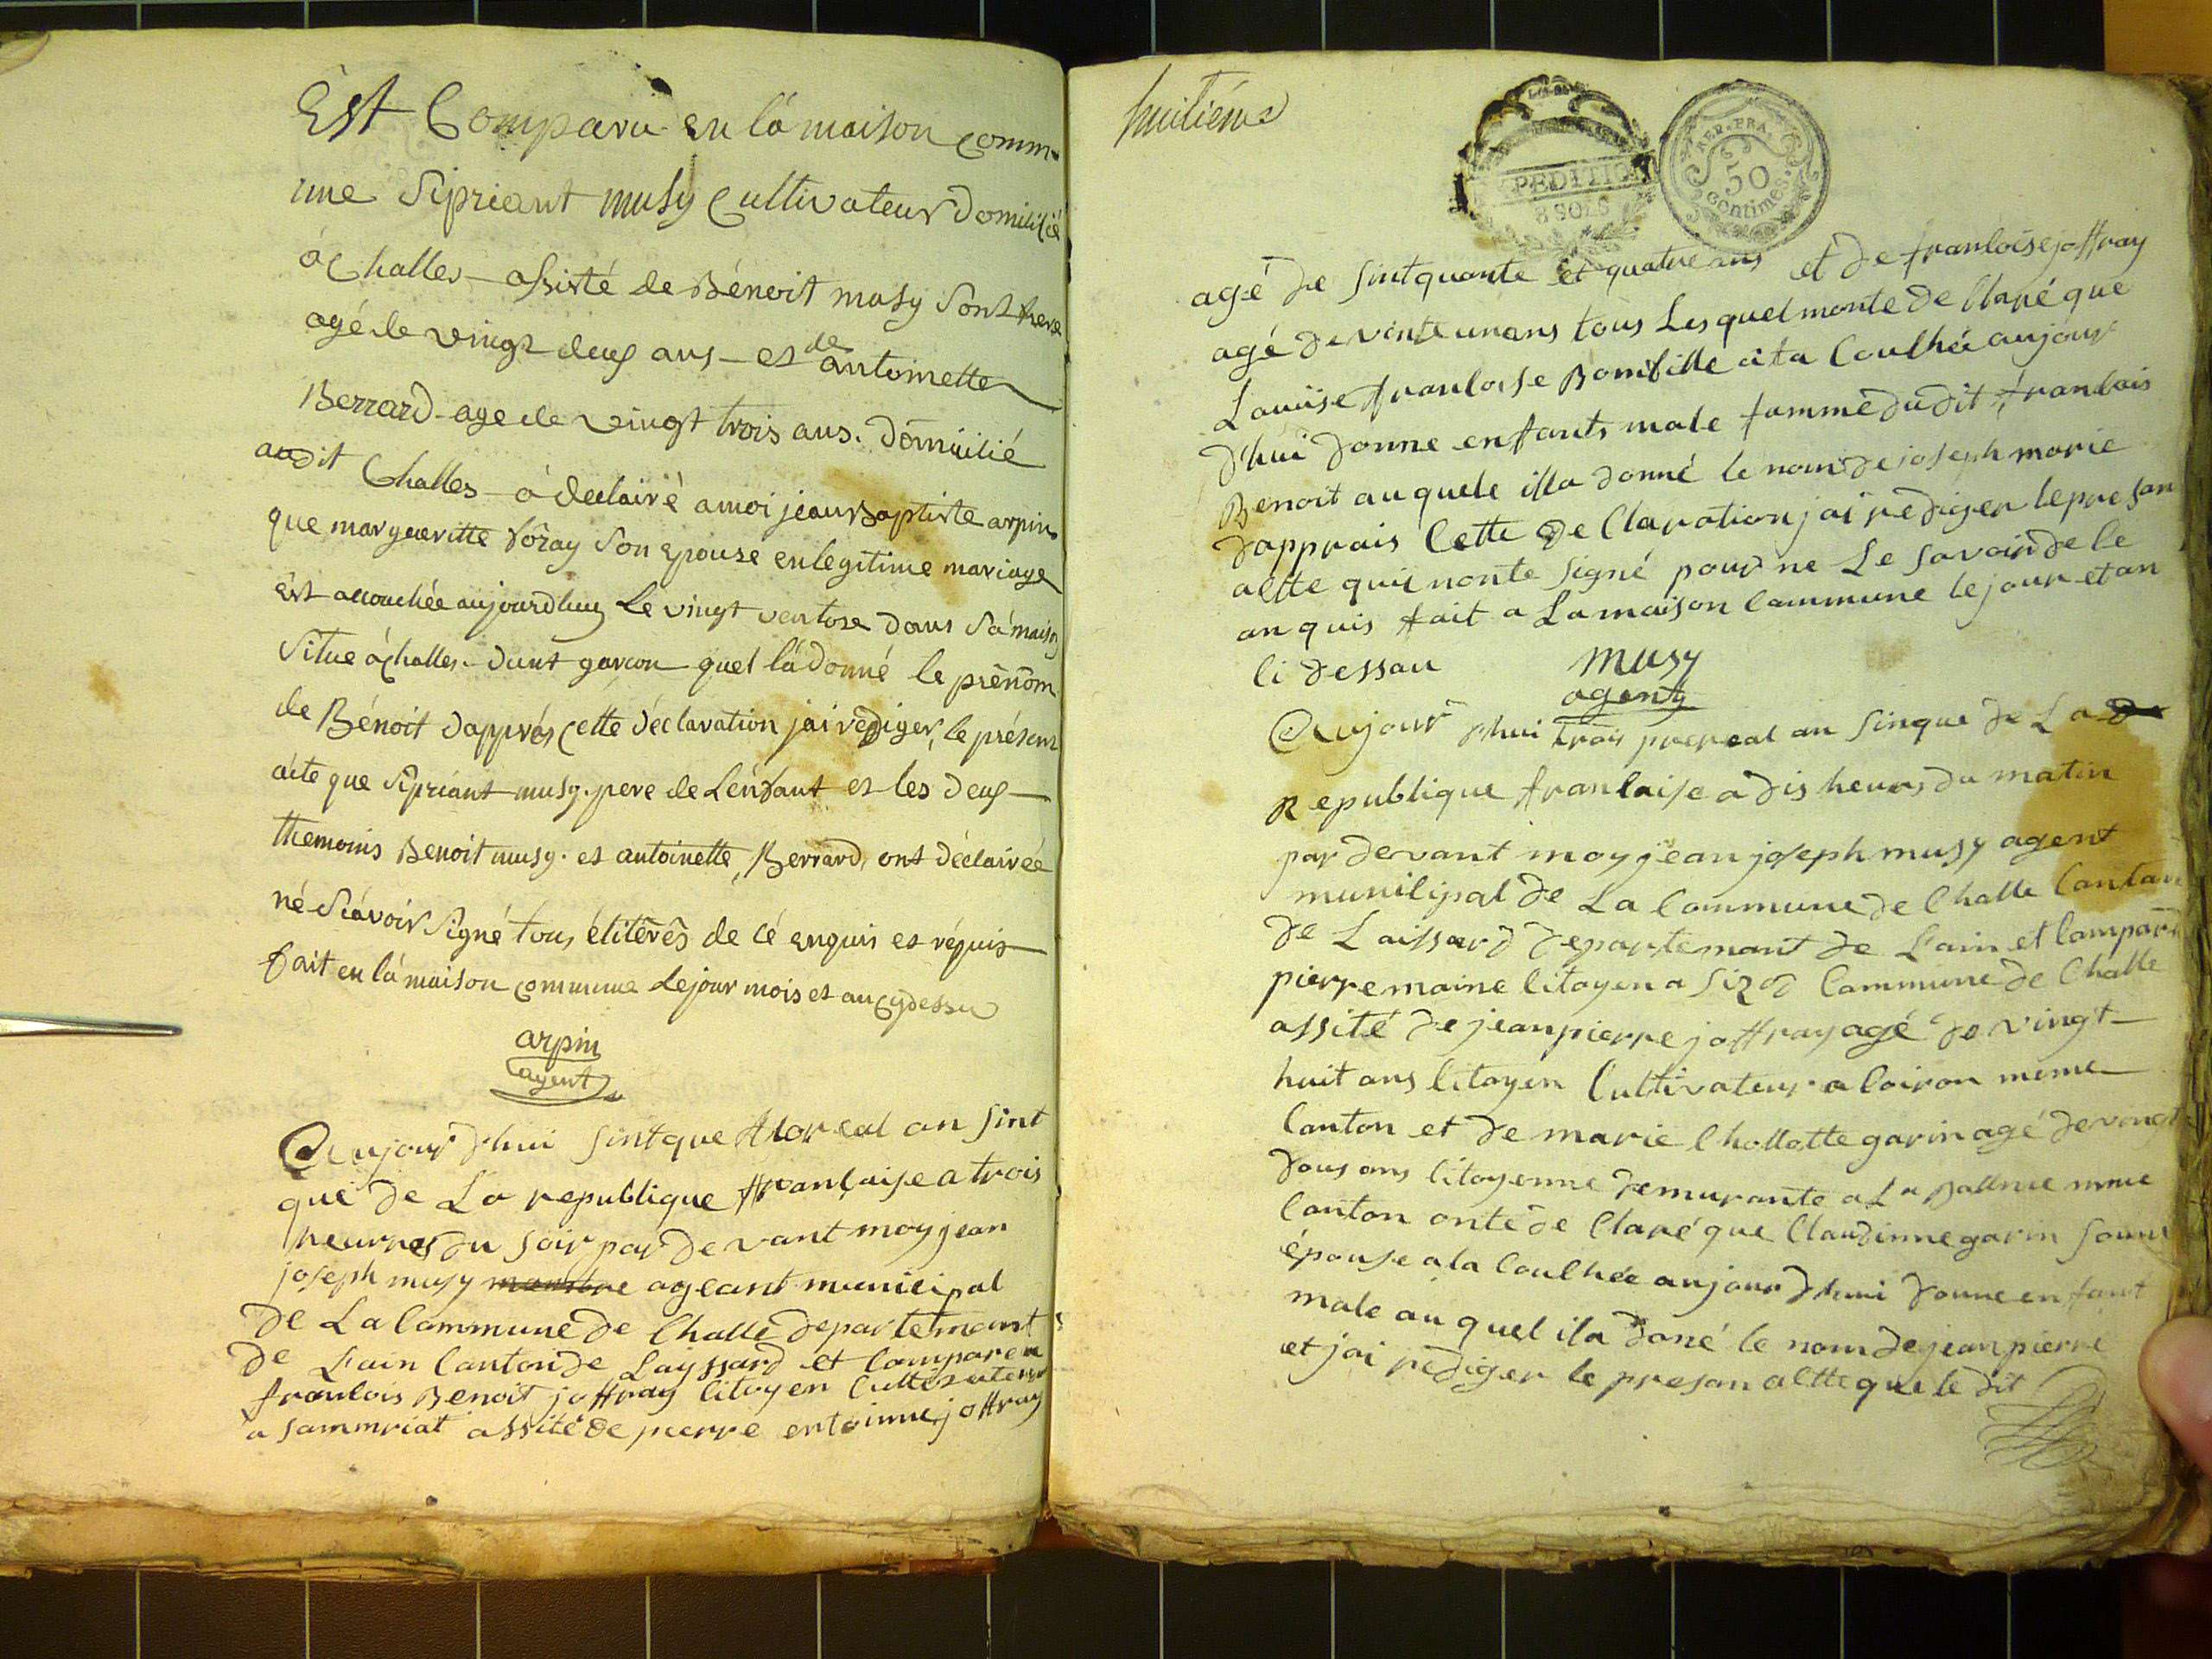 Est Comparu en la maison comm-
une Sipriant musy Cultivateur domicilié
a Challes - assisté de Bénoit musy Sont frere
agé de vingt deux ans - et de antoinette
Berrard age de vingt trois ans. domicilié
audit Challes - à declairé a moi jean Baptiste arpin
que margueritte Joray Son epouse en legitime mariage
est accouchée aujourdhuy le vingt ventose dans Sa maison
Situe a Challes - dunt garcon quel la donné le prénom
de Bénoit dapprés Cette déclaration jai rediger, le présent
acte que Sipriant musy. pere de Lenfant et les deux
themoins Benoit musy. et antoinette, Berrard, ont déclairée
né Scavoir Signé tous, de cé enquis et réquis
fait en la maison commune Le jour mois et an cydessu
arpin
agent
Aujourd'hui Sintque floreal an Sint
que de La republique francaise a trois
heurres du Soir par devant moy jean
joseph musy ageant municipal
de La Commune de Challe departemant
de Lain Canton de Laissard et Compareu
francois Benoit joffray Citoyen Cultivateur
a Sammriat assité de pierre entoinne joffray
huitiéme
EXPEDITION
8 SOLS
REP. FRA.
50
Centimes.
agé de Sintquante et quatre ans et de francoise joffray
agé de vinte un ans tous Lesquel monte de Claré que
Louise francoise Bombille à ta Couchée aujour
d'hui donne enfants male famme dudit francois
Benoit au quele illa donné le nom de joseph marie
dapprais Cette de Claration jai rediger le presan
actte quie nonte Signé pour ne Le Savoir de Ce
an quis fait a La maison Commune le jour et an
Ci dessau
musy
agent
Aujourd'hui trois prereal an Sinque de La
Republique francaise a dis heurs du matin
par devant moy jean joseph musy agent
municipal de La Commune de Challe Cantan
de Laissard departemant de Lain et Comparu
pierre maine Citoyen a Sizod Commune de Challe
assité de jean pierre joffray agé de vingt
huit ans Citoyen Cultivateur a Coiron meme
Canton et de marie Chollotte garin agé de vingt
dous ans Citoyenne demurante a La Ballme mme
Canton onte de Claré que Claudinne garin Sonne
épouse a la Couchée aujourdhui donne enfant
male au quel ila doné le nom de jean pierre
et jai rediger le presan actte que le dit